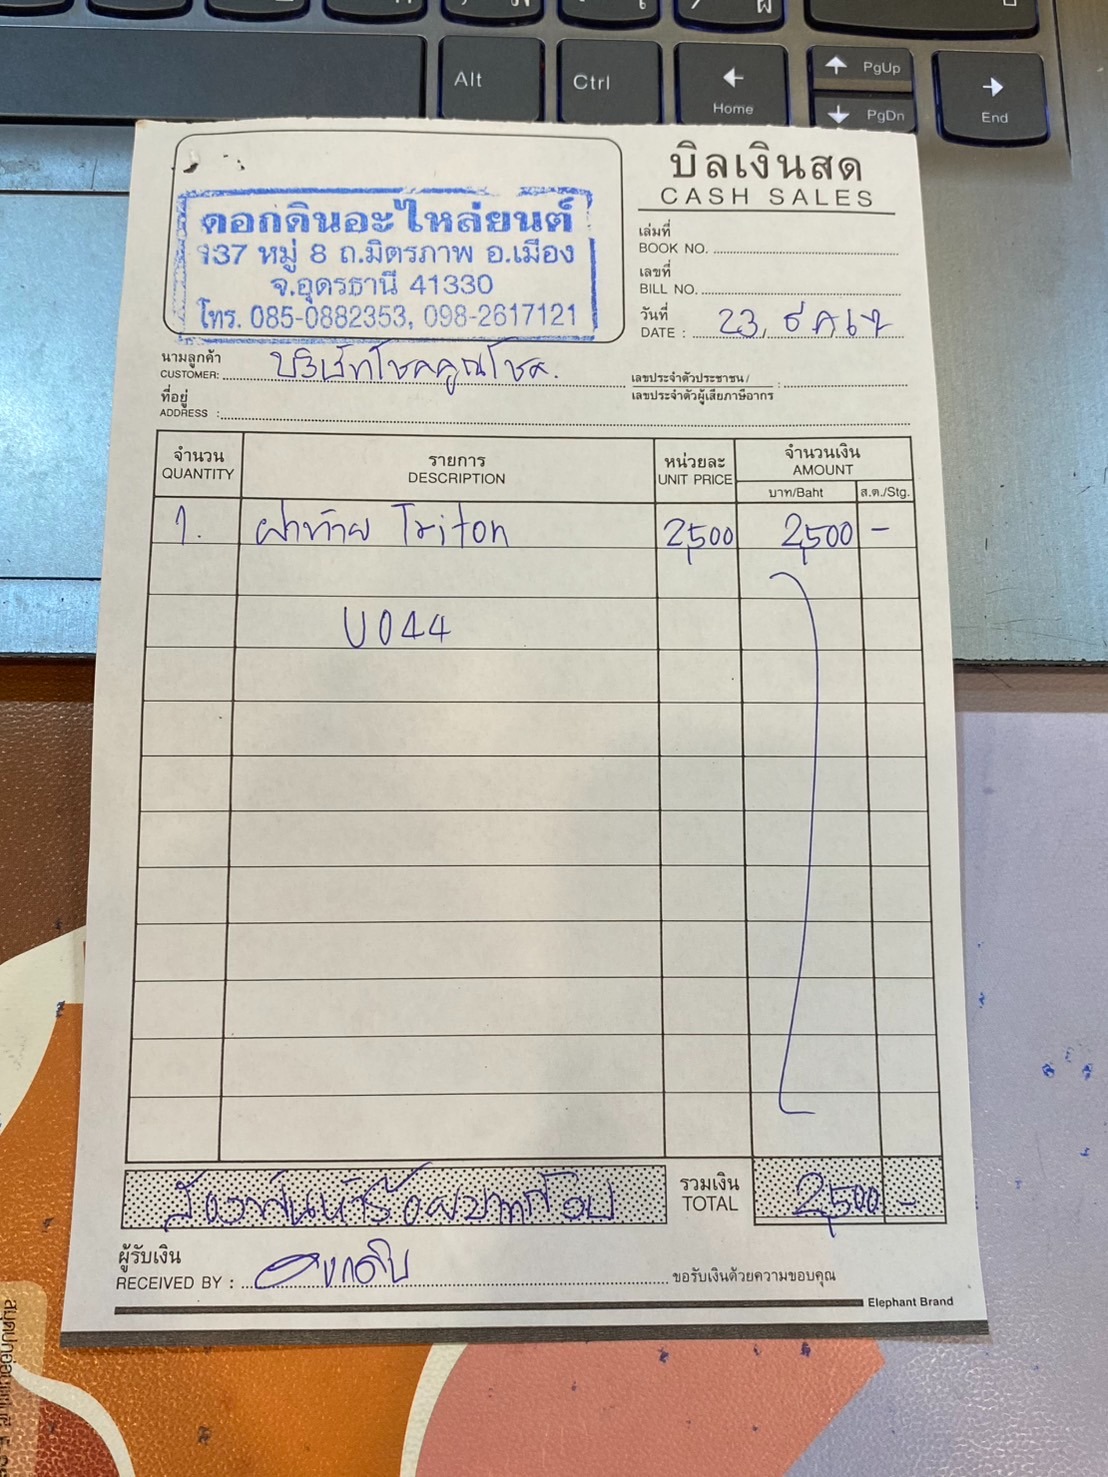 Alt
Ctrl
Home
PgUp
PgDn
End
บิลเงินสด
CASH SALES
ดอกดินอะไหล่ยนต์
137 หมู่ 8 ถ.มิตรภาพ อ.เมือง
จ.อุดรธานี 41330
โทร. 085-0882353, 098-2617121
เล่มที่
BOOK NO.
เลขที่
BILL NO.
วันที่
DATE : 23, ธค 67
นามลูกค้า
CUSTOMER: บริษัทโชคคูณโชค.
เลขประจำตัวประชาชน /
เลขประจำตัวผู้เสียภาษีอากร :
ที่อยู่
ADDRESS :
จำนวน รายการ หน่วยละ จำนวนเงิน
QUANTITY DESCRIPTION UNIT PRICE AMOUNT
บาท/Baht ส.ต./Stg.
1. ฝาท้าย Triton 2,500 2,500 -
U044
สองพันห้าร้อยบาทถ้วน
รวมเงิน
TOTAL 2,500 -
ผู้รับเงิน
RECEIVED BY :
ขอรับเงินด้วยความขอบคุณ
Elephant Brand